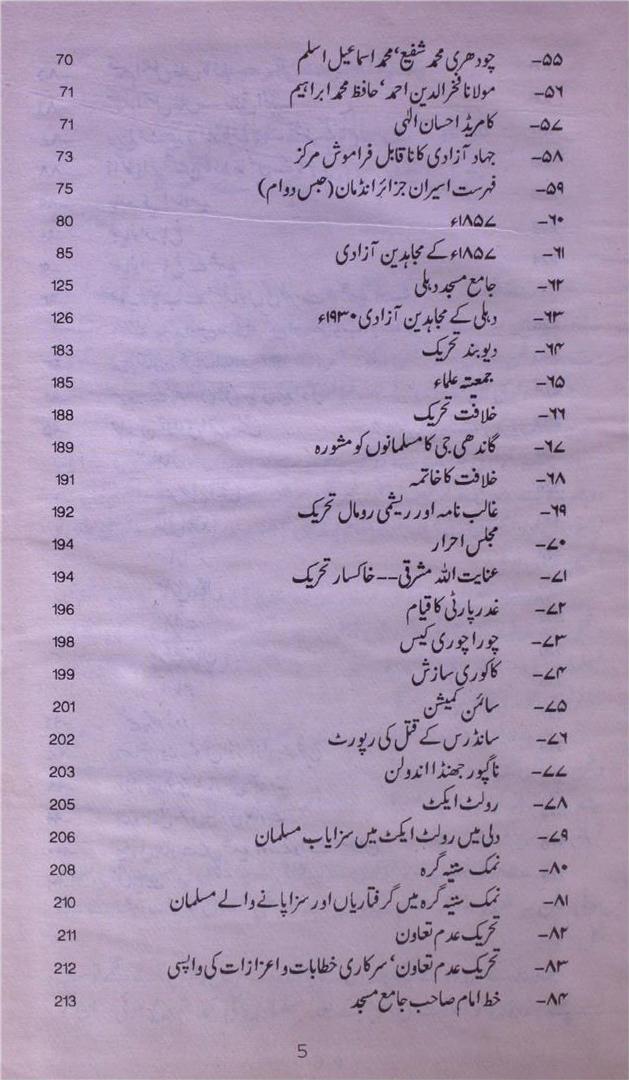 ۵۵- چودھری محمد شفیع‘ محمد اسماعیل اسلم 70
۵۶- مولانا فخرالدین احمد‘ حافظ محمد ابراہیم 71
۵۷- کامریڈ احسان الٰہی 71
۵۸- جہاد آزادی کا ناقابل فراموش مرکز 73
۵۹- فہرست اسیران جزائر انڈمان (حبس دوام) 75
۶۰- ۱۸۵۷ء 80
۶۱- ۱۸۵۷ء کے مجاہدین آزادی 85
۶۲- جامع مسجد دہلی 125
۶۳- دہلی کے مجاہدین آزادی ۱۹۳۰ء 126
۶۴- دیوبند تحریک 183
۶۵- جمعیتہ علماء 185
۶۶- خلافت تحریک 188
۶۷- گاندھی جی کا مسلمانوں کو مشورہ 189
۶۸- خلافت کا خاتمہ 191
۶۹- غالب نامہ اور ریشمی رومال تحریک 192
۷۰- مجلس احرار 194
۷۱- عنایت اللہ مشرقی -- خاکسار تحریک 194
۷۲- غدر پارٹی کا قیام 196
۷۳- چورا چوری کیس 198
۷۴- کاکوری سازش 199
۷۵- سائن کمیشن 201
۷۶- سانڈرس کے قتل کی رپورٹ 202
۷۷- ناگپور جھنڈا اندولن 203
۷۸- رولٹ ایکٹ 205
۷۹- دلی میں رولٹ ایکٹ میں سزایاب مسلمان 206
۸۰- نمک ستیہ گرہ 208
۸۱- نمک ستیہ گرہ میں گرفتاریاں اور سزا پانے والے مسلمان 210
۸۲- تحریک عدم تعاون 211
۸۳- تحریک عدم تعاون‘ سرکاری خطابات و اعزازات کی واپسی 212
۸۴- خط امام صاحب جامع مسجد 213
5